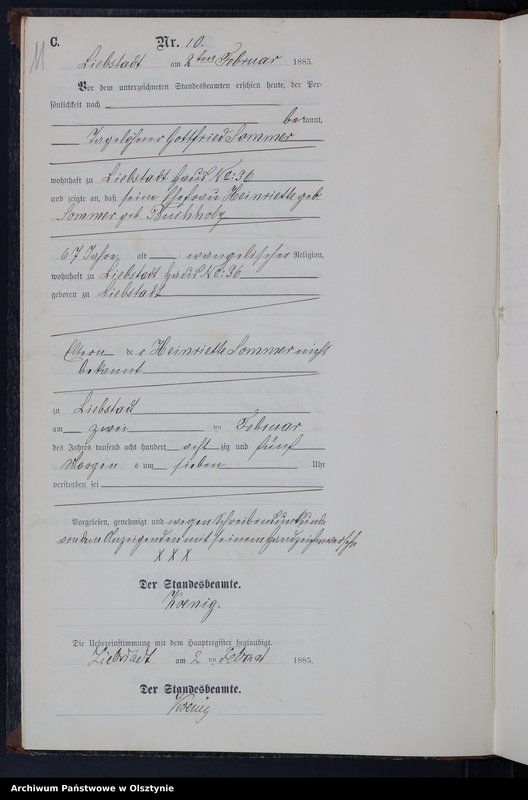 11
C. Nr. 10.
Liebstadt am 2ten Februar 1885.
Vor dem unterzeichneten Standesbeamten erschien heute, der Per-
sönlichkeit nach
bekannt,
Tagelöhner Gottfried Sommer
wohnhaft zu Liebstadt Haus No: 36
und zeigte an, daß seine Ehefrau Henriette geb.
Sommer geb. Buchholz
67 Jahre alt evangelischer Religion,
wohnhaft zu Liebstadt Haus No: 36
geboren zu Liebstadt
Eltern der Heinriette Sommer nicht
bekannt
zu Liebstadt
am zwei ten Februar
des Jahres tausend acht hundert acht zig und fünf
Morgens um sieben Uhr
verstorben sei
Vorgelesen, genehmigt und wegen Schreibensunkunde
von dem Anzeigenden mit seinem Handzeichen versehen
X X X
Der Standesbeamte.
Koenig.
Die Uebereinstimmung mit dem Hauptregister beglaubigt.
Liebstadt am 2 ten Februar 1885.
Der Standesbeamte.
Koenig
Archiwum Państwowe w Olsztynie